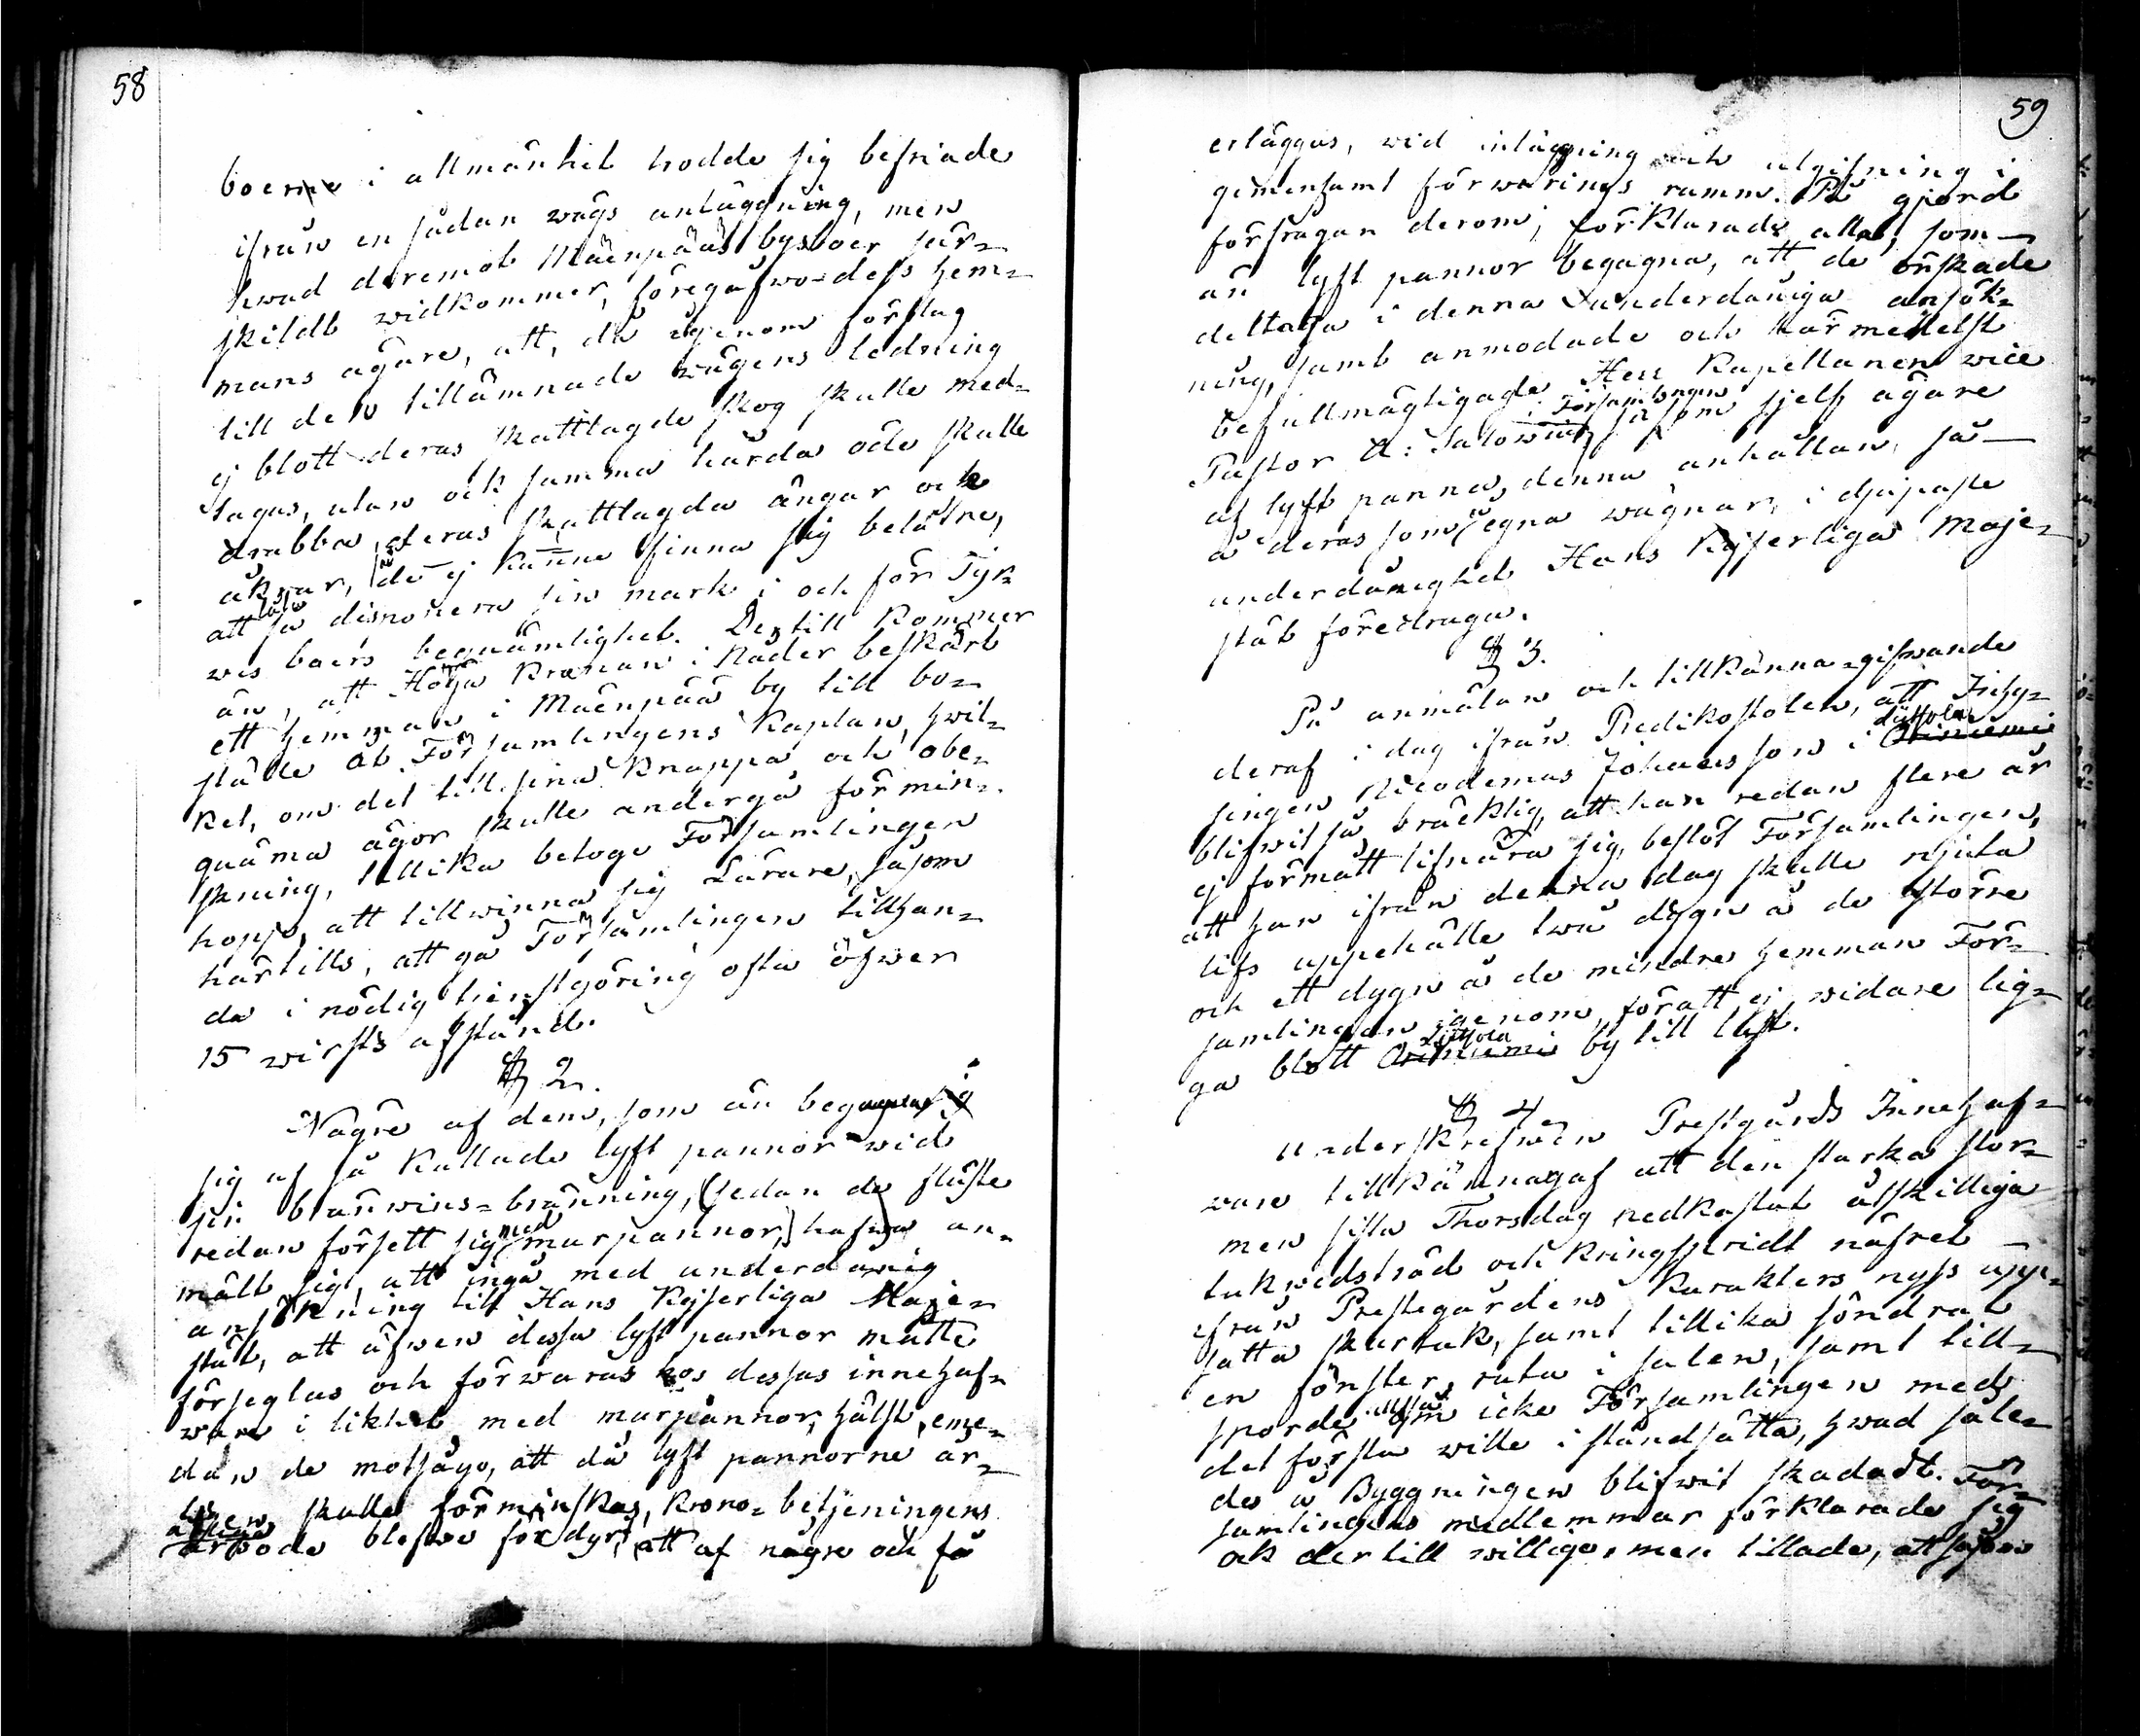 58
boerne i allmänhet trodde sig befriade
ifrån en sådan wägs anläggning, men
hwad deremot Mäenpää bysboer sär-
skildt widkommer, föregåfwo dess hem-
mans ägare, att, då igenom förslag
till den tillämnade wägens ledning
ej blott deras skattlagde skog skulle med-
tagas, utan ock samma hårda öde skulle
drabba deras skattlagda ängar och
åkrar, de ej kunna finna sig belåtne,
att så dimonera sin mark i och för Tyr-
wis boers beqwämlighet. Dertill kommer
än, att Höga Kronan i Nåder beskärt
ett hemman i Mäenpää by till bo-
ställe åt Församlingens Kaplan, hwil-
ket, om det till sina knappa och obe-
quäma ägor skulle undergå förmin-
skning, tillika betoge Församlingen
hopp, att tillwinna sig Lärare, såsom
härtills, att gå Församlingen tillhan-
da i nödig tienstgöring ofta öfwer
15 wirsts afstånd.
§ 2.
Någre af dem, som än begagna
sig af så kallade lyft pannor wid
sin bränwins-bränning, (sedan de fläste
redan försett sig med murpannor,) hafwa an-
mält sig, att ingå med underdånig
ansökning till Hans Kejserliga Maje-
stät, att äfwen dessa lyft pannor måtte
förseglas och förwaras hos dessas innehaf-
ware i likhet med murpannor, hälst eme-
dan de motsågo, att då lyft pannorne år-
ligen skulle förminskas, Krono-betjeningens
arbode blefwe för dyrt, att af någre och få
59
erläggas, wid inläggning och utgifning i
gemensamt förwarings rumm. På gjord
förfrågan derom, förklarade alla, som
än lyft pannor begagna, att de önskade
deltaga i denna underdåniga ansök-
ning, samt anmodade och härmedelst
befullmägtigade Herr Kapellanen vice
i Församlingen
Pastor A: Salovius såsom sjelf ägare
af lyft panna, denna anhållan, så
å deras som egna wägnar, i djupaste
underdånighet Hans Kejserliga Maje-
stät föredraga.
§ 3.
På anmälan och tillkänna-gifwande
deraf i dag ifrån Predikostolen, att Inhy-
singen Nicodemus Johansson i
blifwit så bräcklig, att han redan flere år
ej förmått lifnära sig, beslöt Församlingen,
att han ifrån denna dag skulle njuta
lifs uppehälle twå dygn å de större
och ett dygn å de mindre hemman För-
samlingen igenom, för att ej widare lig-
ga blott by till last.
§ 4
Underskrefwen Prestgårds Innehaf-
ware tillkännagaf att den starka stor-
men sista Thorsdag nedkastat åtskilliga
takwedsträd och kringspridt näfret
ifrån Prestegårdens Karakters nyss upp-
satta skurtak, samt tillika söndrat
en fönster ruta i salen, samt till-
sporde alltså om icke Församlingen med
det första wille i ståndsätta, hwad såle-
des å Byggningen blifwit skadadt. För-
samlingens medlemmar förklarade sig
ock dertill willige, men tillade, att såsom